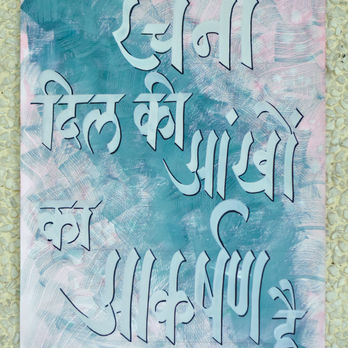 रचना
दिल की
आंखों
का
आकर्षण
है